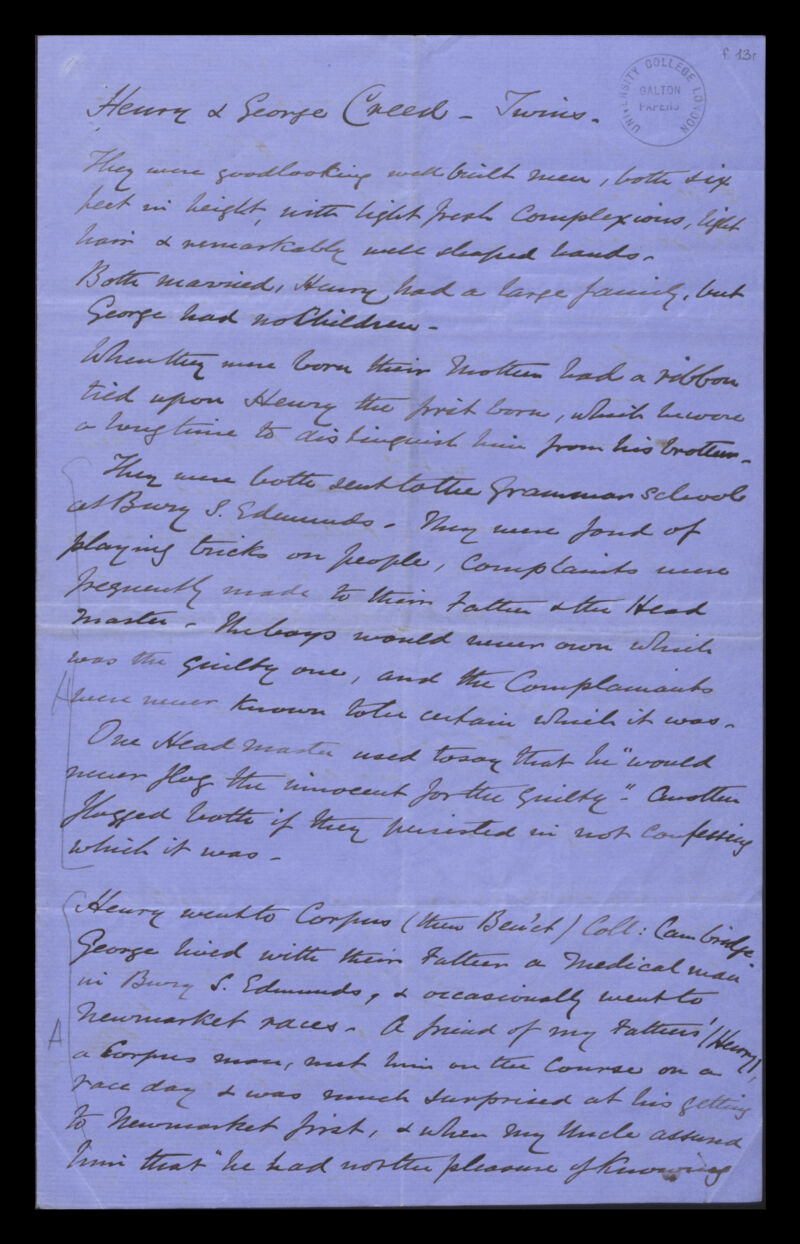 f. 13r
UNIVERSITY COLLEGE LONDON
GALTON
PAPERS
Henry & George Creed - Twins -
They were goodlooking well built men, both six
feet in height, with light fresh Complexions, light
hair & remarkably well shaped hands -
Both married, Henry had a large family, but
George had no Children -
When they were born their Mother had a ribbon
tied upon Henry the first born, which he wore
a long time to distinguish him from his brother -
They were both sent to the Grammar School
at Bury S. Edmunds - They were fond of
playing tricks on people, Complaints were
frequently made to their Father & the Head
Master - The boys would never own which
was the guilty one, and the Complainants
were never Known to be certain which it was -
One Head Master used to say that he "would
never flog the innocent for the guilty" - Another
flogged both if they persisted in not Confessing
which it was -
Henry went to Corpus (then Ben'et) Coll: Cambridge
George lived with their Father a Medical man
in Bury S. Edmunds, & occasionally went to
A
Newmarket races - A friend of my Father's (Henry),
a Corpus man, met him on the Course on a
race day & was much surprised at his getting
to Newmarket first, & when my Uncle assured
him that "he had not the pleasure of Knowing